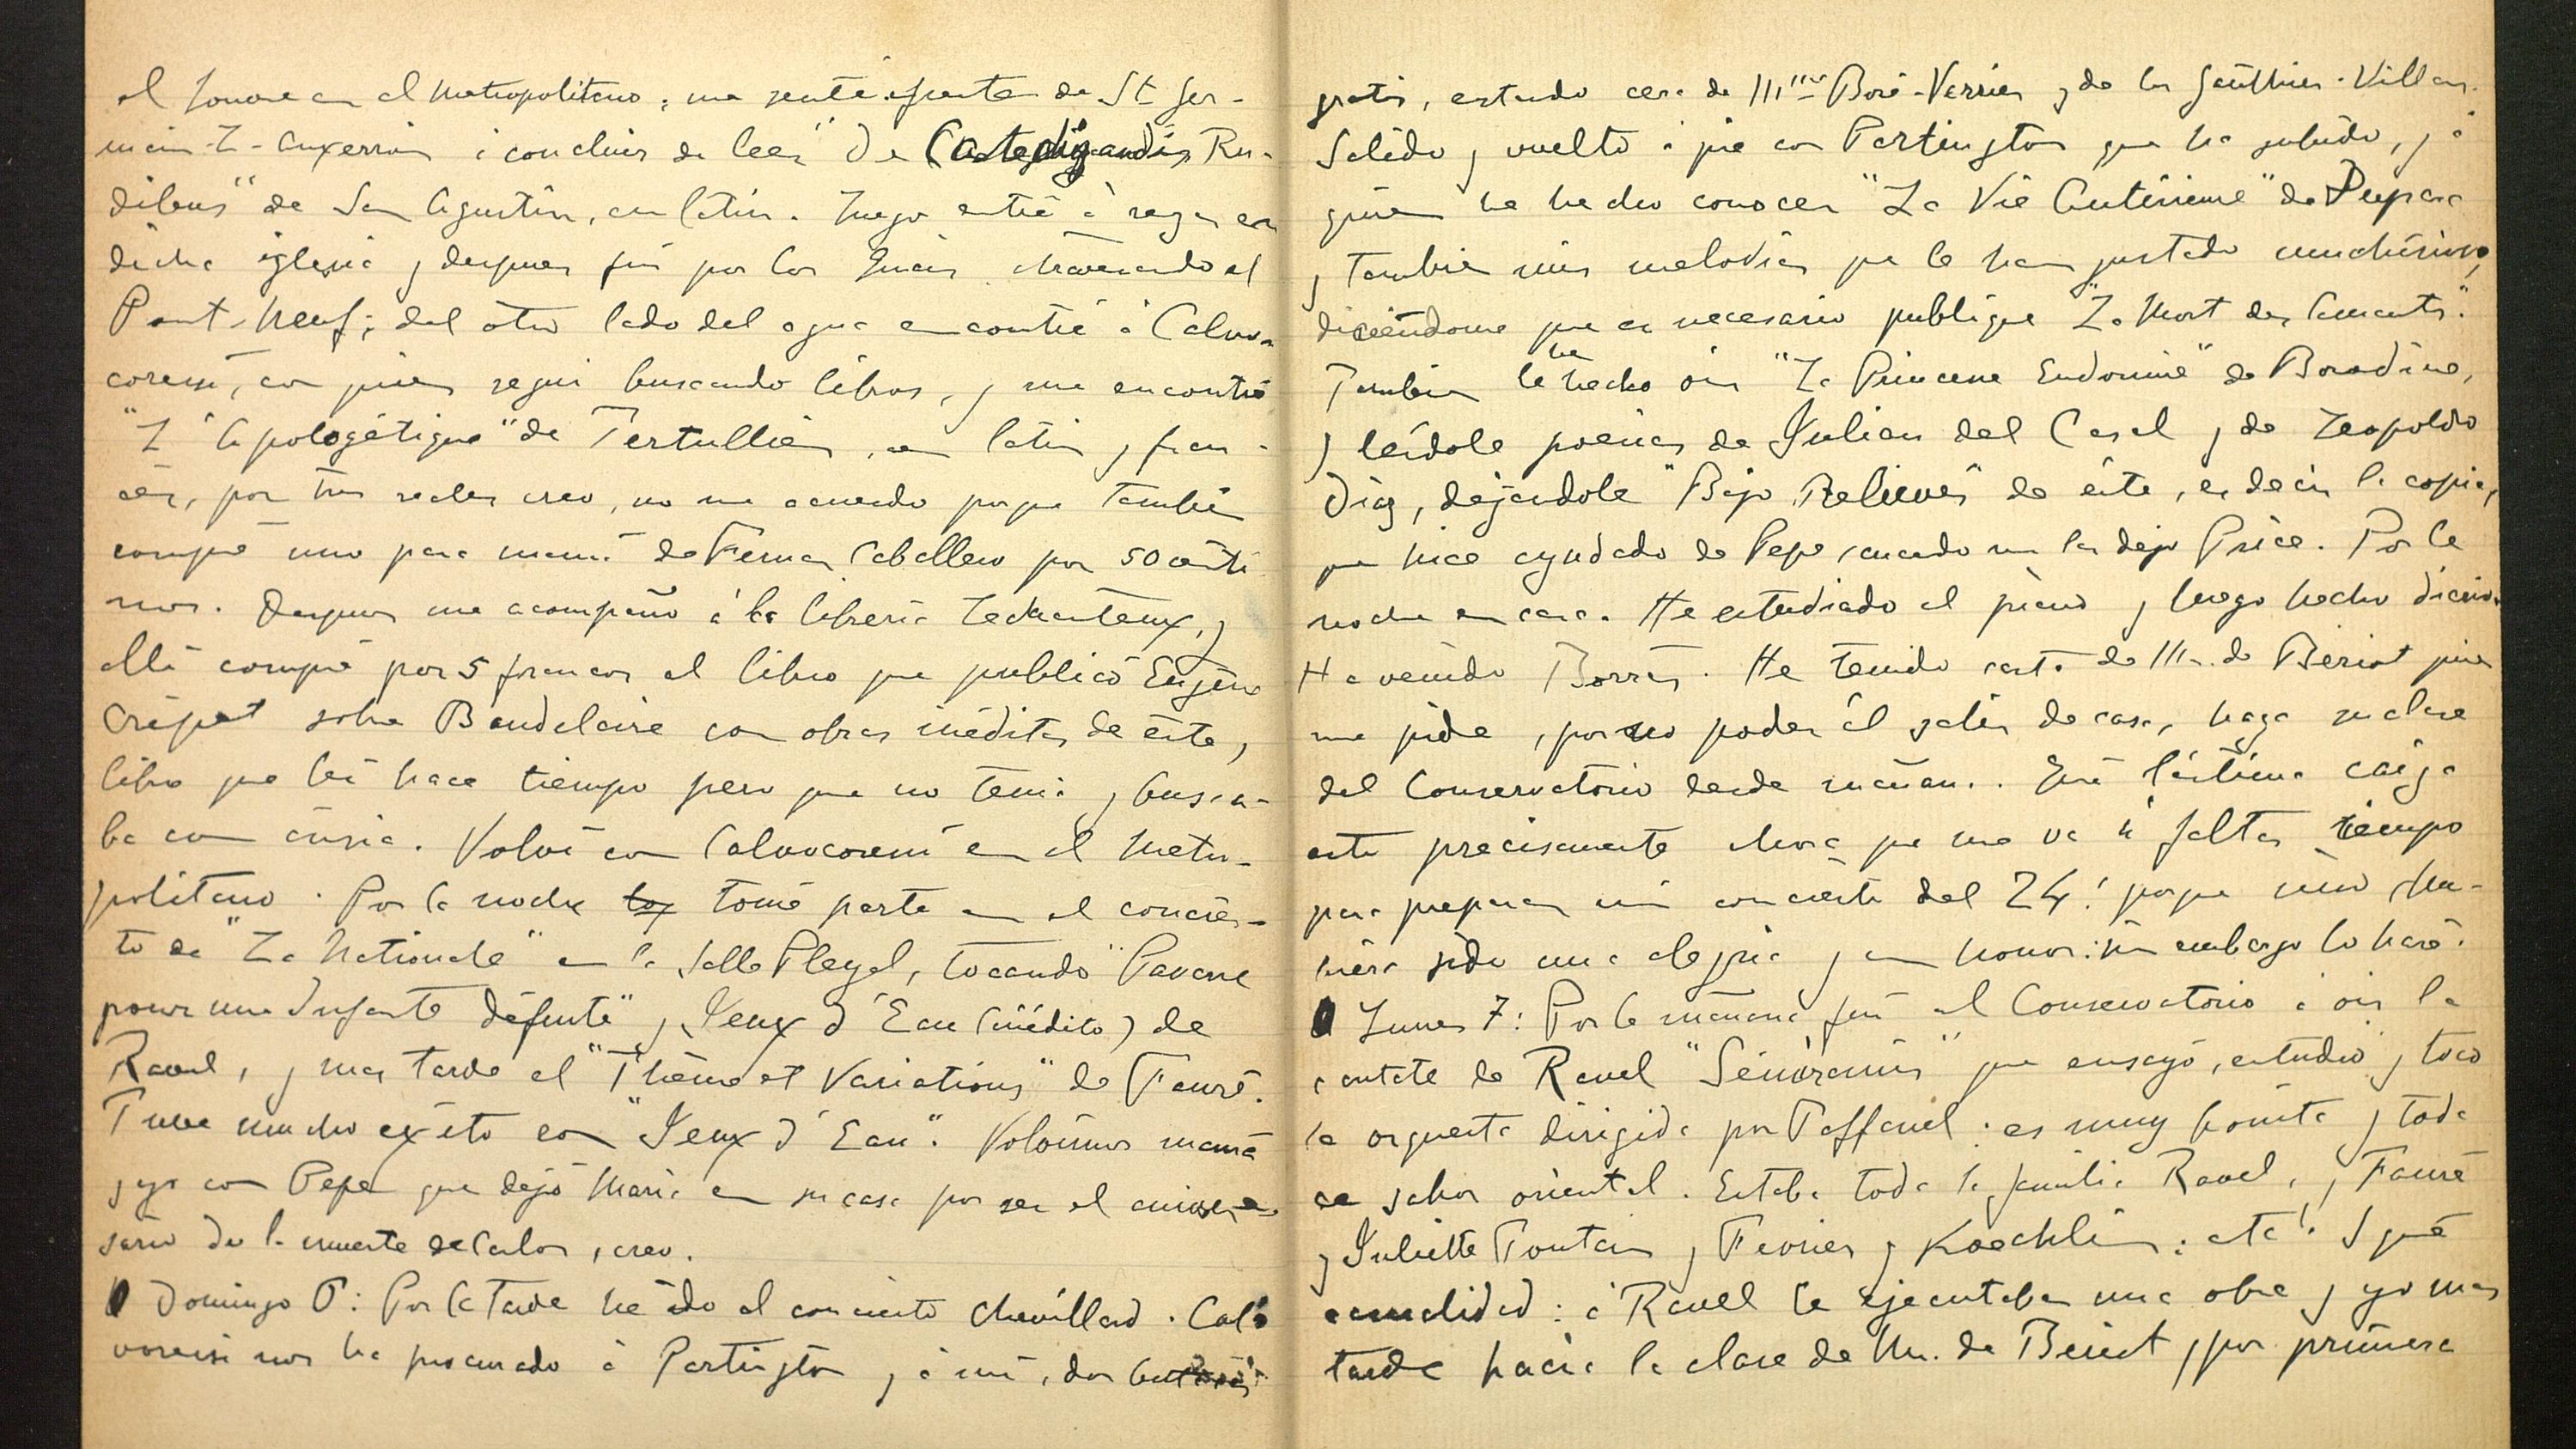 al Louvre en el Metropolitano; me senté enfrente de St Ger-
main-L-Auxerrois á concluir de leer "De Catechizandis Ru-
dibus" de San Agustin, en latin. Luego entré á rezar en
dicha iglesia y despues fuí por los Quais atravesando el
Pont-Neuf; del otro lado del agua encontré á Calvo-
coressi, con quien seguí buscando libros, y me encontré
"L'Apologétique" de Tertullien, en latin y fran-
cés, por tres reales creo, no me acuerdo porque también
compré uno para mamá de Fernan Caballero por 50 cénti
mos. Despues me acompañó á la libreria Lechanteux, y
allí compré por 5 francos el libro que publicó Eugène
Crépet sobre Baudelaire con obras inéditas de éste,
libro que leí hace tiempo pero que no tenia y busca-
ba con ánsia. Volví con Calvocoressi en el Metro-
politano. Por la noche tomé parte en el concier-
to de "La Nationale" en la Salle Pleyel, tocando "Pavane
pour une Infante défunte" y Jeux d'Eau (inédito) de
Ravel, y mas tarde el "Thème et Variations" de Fauré.
Tuve mucho éxito con "Jeux d'Eau". Volvimos mamá
y yo con Pepe que dejó Maria en su casa por ser el aniver
sario de la muerte de Carlos, creo.
Domingo 6: Por la tarde he ido al concierto Chevillard. Cal
vocoressi nos ha procurado á Partington y á mí, dos
gratis, estando cerca de Mlle Boré-Verrier y de los Gauthier-Villars.
Salido y vuelto á pie con Partington que ha subido, y á
quien he hecho conocer "La Vie Antérieure" de Duparc
y tambien mis melodias que le han gustado muchísimo,
diciéndome que es necesario publique "La Mort des Amants".
Tambien le he hecho oir "La Princesse Endormie" de Borodine,
y leídole poesias de Julian del Casal y de Leopoldo
Diaz, dejándole "Bajo Relieves" de éste, es decir la copia,
que hice ayudado de Pepe cuando me los dejó Price. Por la
noche en casa. He estudiado el piano y luego hecho diario.
Ha venido Borrás. He tenido carta de Mr. de Bériot quien
me pide, por no poder él salir de casa, haga su clase
del Conservatorio desde mañana. Qué lástima caiga
esto precisamente ahora que me va á faltar tiempo
para preparar mi concierto del 24! porque sino hu-
biera sido una alegria y un honor: sin embargo lo haré.
Lunes 7: Por la mañana fuí al Conservatorio á oir la
cantate de Ravel "Sémiramis" que ensayó, estudió y tocó
la orquesta dirigida por Taffanel: es muy bonita y toda
de sabor oriental. Estaba toda la familia Ravel, y Fauré
y Juliette Toutain y Fevrier y Koechlin; etc! Y qué
casualidad: á Ravel le ejecutaban una obra y yo mas
tarde hacia la clase de Mr. de Bériot por primera